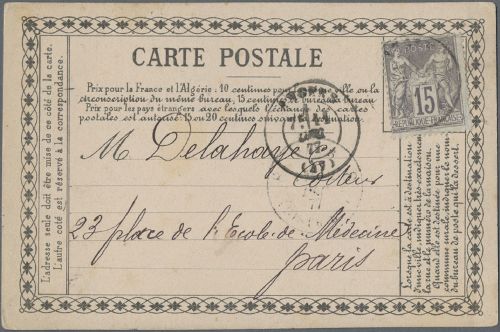 CARTE POSTALE
Prix pour la France et l'Algérie: 10 centimes pour la ville ou la
circonscription du même bureau, 15 centimes de bureau à bureau.
Prix pour les pays étrangers avec lesquels l'échange des cartes
postales est autorisé 15 ou 20 centimes suivant
L'adresse seule doit être mise de ce côté de la carte.
L'autre côté est réservé à la correspondance.
POSTE
15
RÉPUBLIQUE FRANÇAISE
77
(37)
M. Delahaye
Editeur
23 place de l'Ecole de Médecine
Paris
Lorsque la carte est à destination
d'une ville, indiquer très-exactement
la rue et le numéro de la maison.
Quand elle est destinée pour une
commune rurale, indiquer le nom
du bureau de poste qui la dessert.